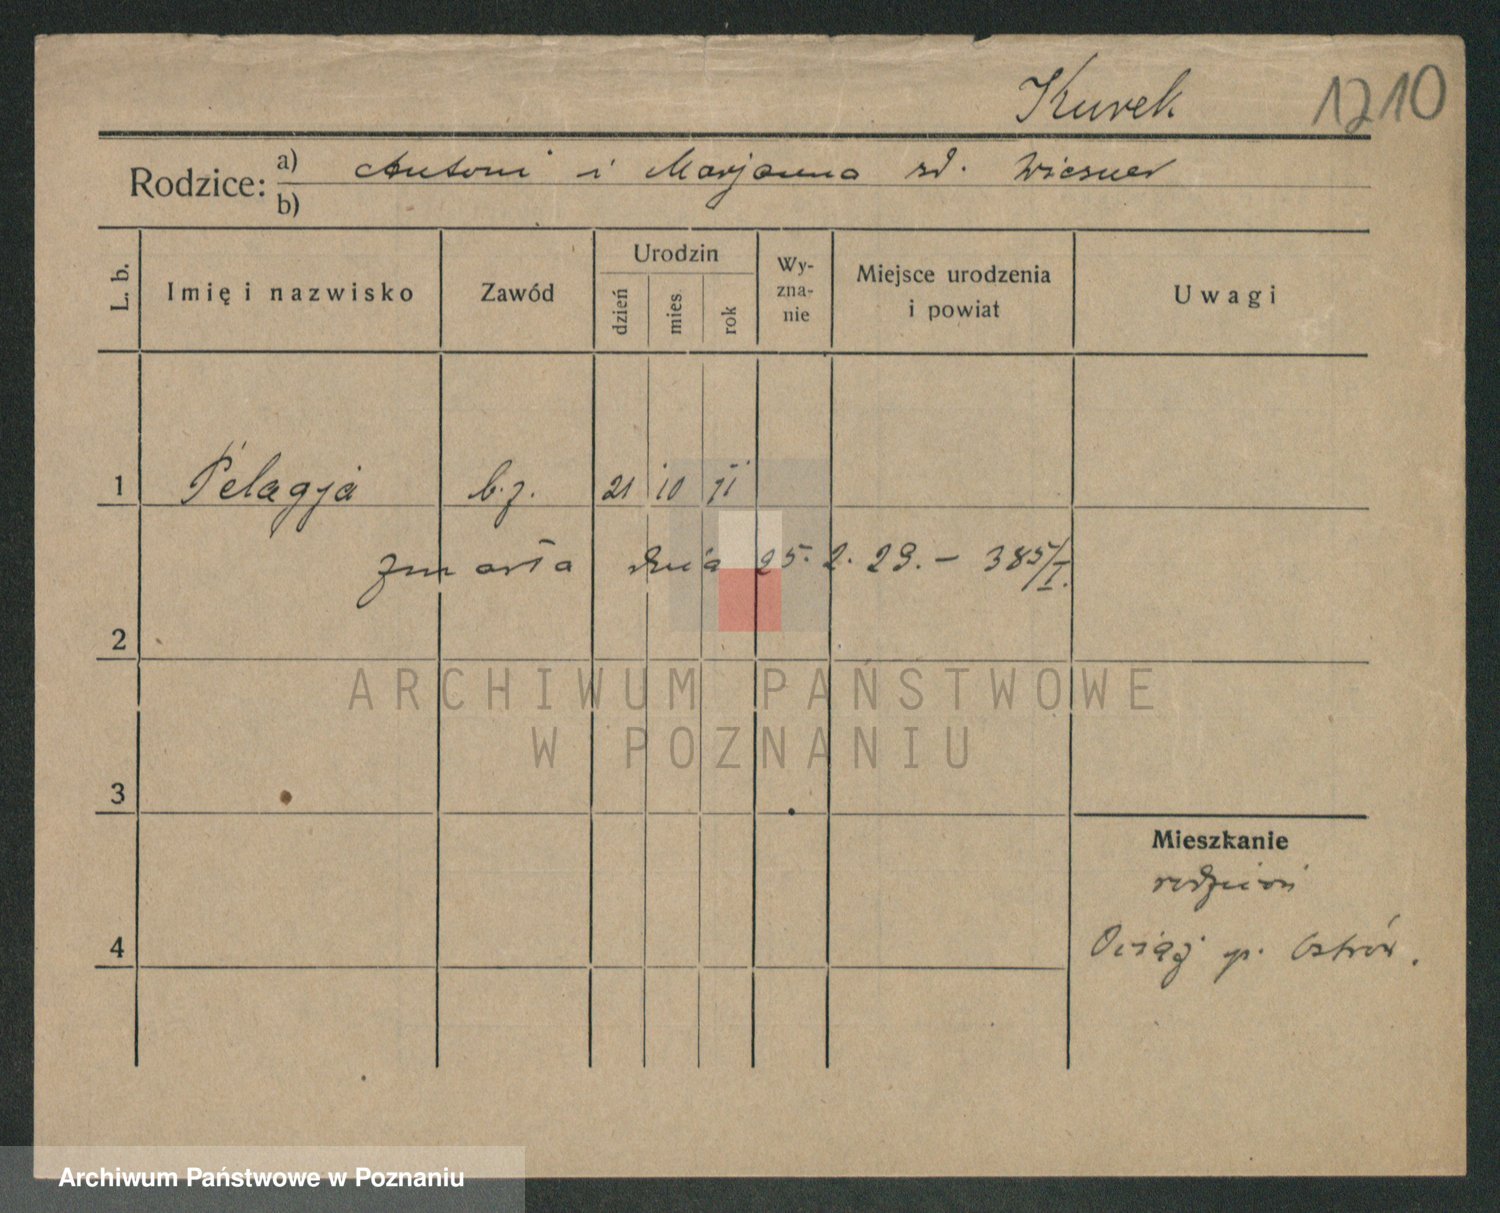 Kurek 1210
Rodzice: a) Antoni i Marjanna zd. Wiesner
b)
L. b. Imię i nazwisko Zawód Urodzin dzień mies rok Wy-zna-nie Miejsce urodzenia i powiat Uwagi
1 Pelagja b.z. 21 10 11
zmarła dnia 25. 2. 29. – 385/I.
2
ARCHIWUM PAŃSTWOWE
W POZNANIU
3
Mieszkanie
4 Ociąż p. Ostrów.
Archiwum Państwowe w Poznaniu